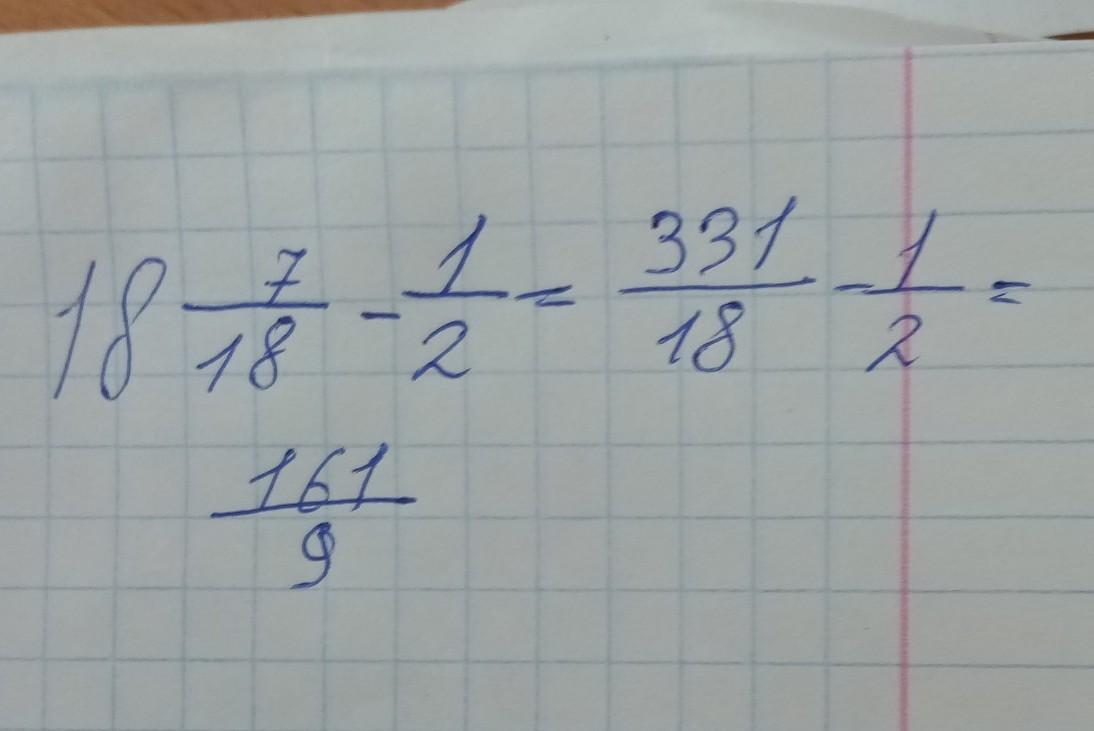 18 7/18 - 1/2 = 331/18 - 1/2 =
161/9